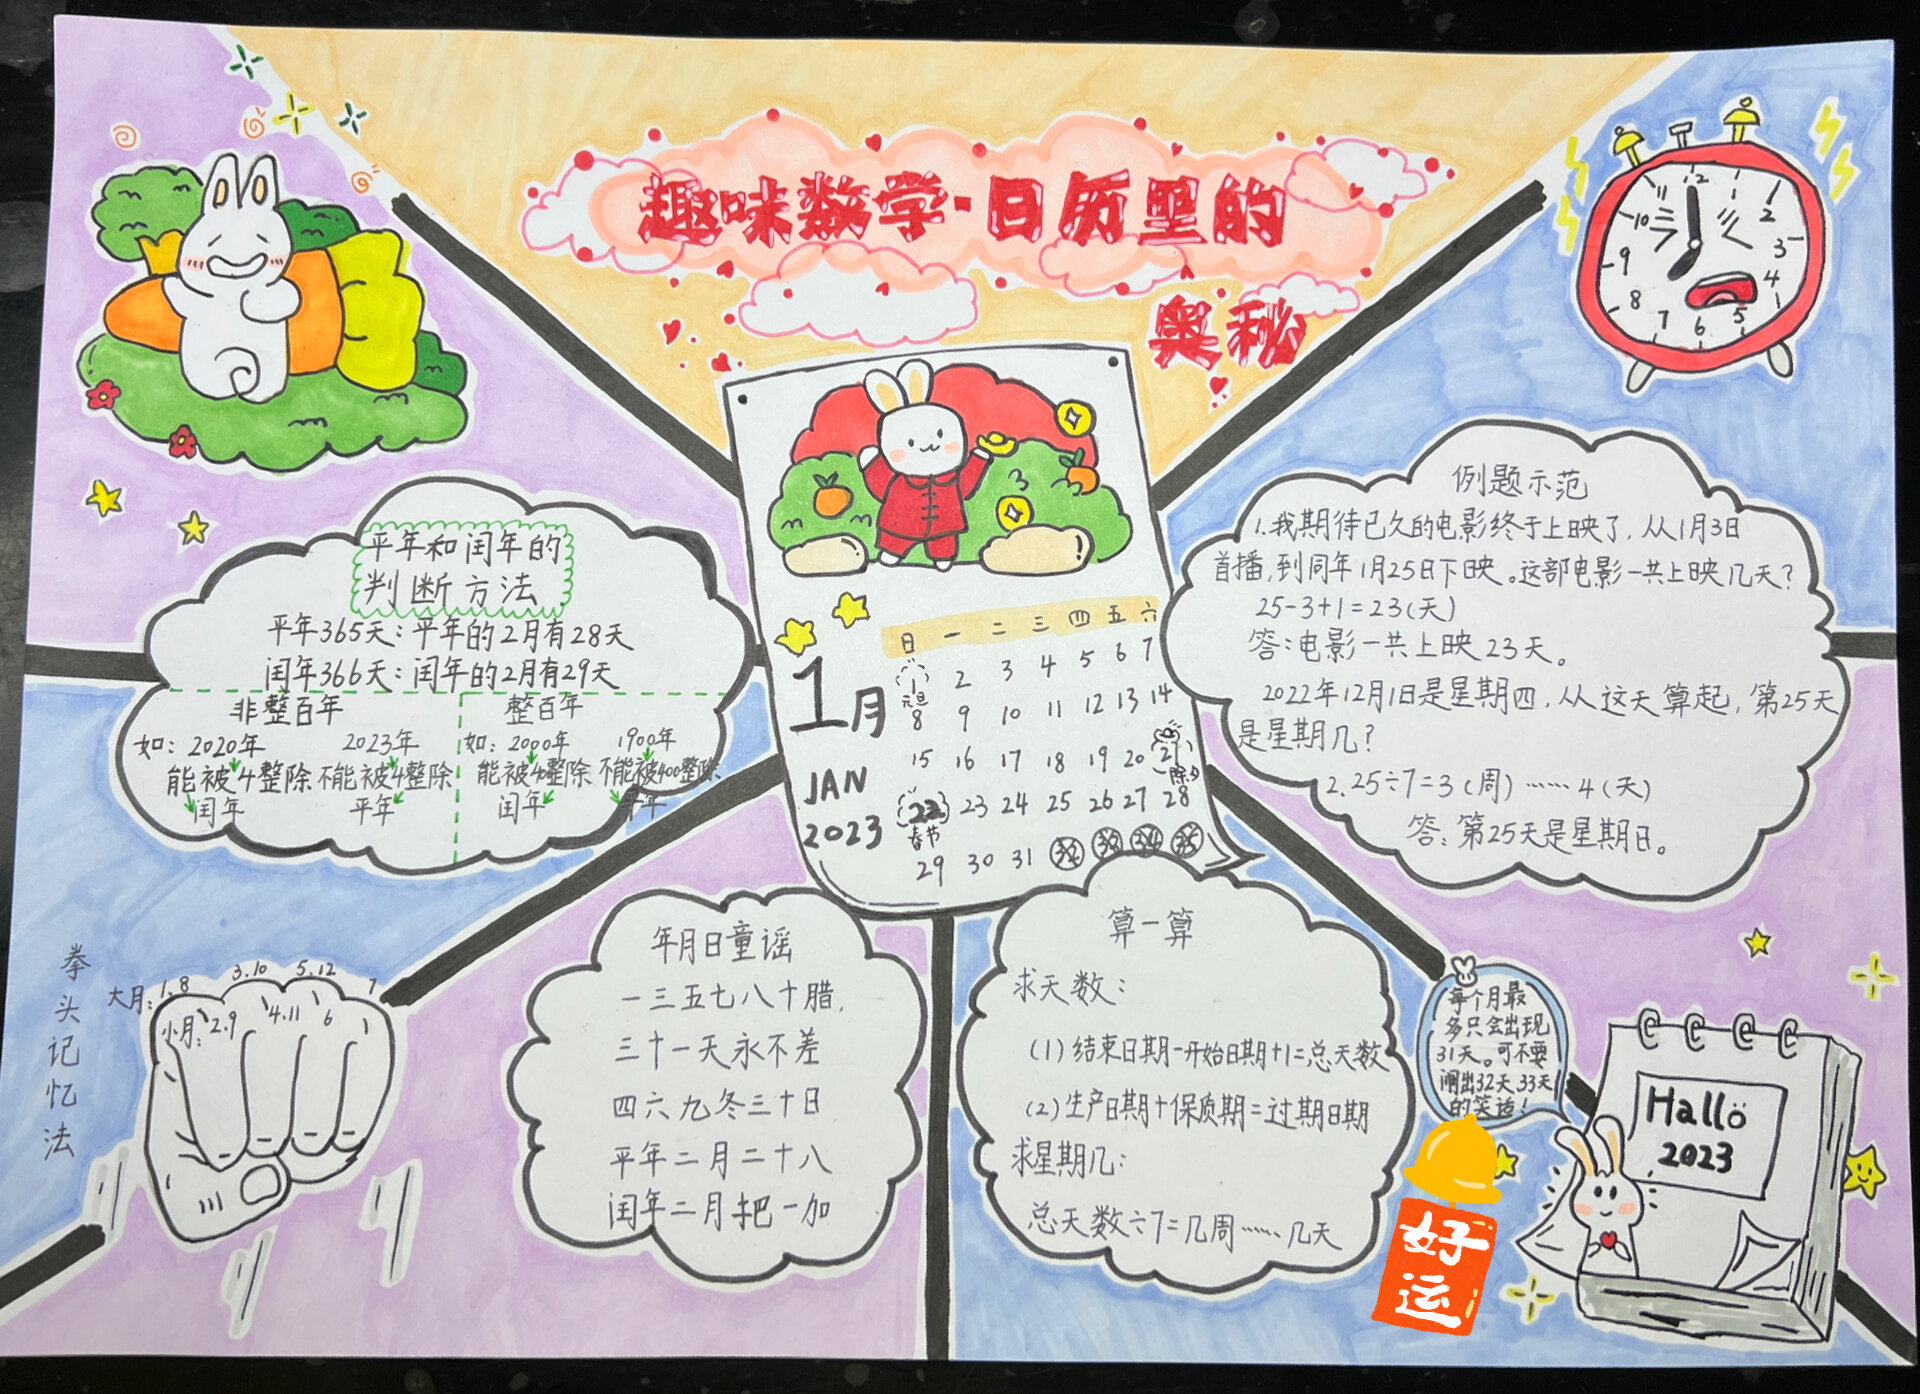 趣味数学·日历里的
奥秘
平年和闰年的
判断方法
平年365天:平年的2月有28天
闰年366天:闰年的2月有29天
非整百年 整百年
如:2020年 2023年 如:2000年 1900年
能被4整除 不能被4整除 能被400整除 不能被400整除
闰年 平年 闰年 平年
1月
JAN
2023
日 一 二 三 四 五 六
1 2 3 4 5 6 7
元旦
8 9 10 11 12 13 14
15 16 17 18 19 20 21
除夕
22 23 24 25 26 27 28
春节
29 30 31 32 33 34 35
12 1 2 3 4 5 6 7 8 9 10 11
例题示范
1.我期待已久的电影终于上映了,从1月3日
首播,到同年1月25日下映。这部电影一共上映几天?
25-3+1=23(天)
答:电影一共上映23天。
2022年12月1日是星期四,从这天算起,第25天
是星期几?
2.25÷7=3(周)……4(天)
答:第25天是星期日。
拳头记忆法
大月:1.8 3.10 5.12 7
小月:2.9 4.11 6
年月日童谣
一三五七八十腊,
三十一天永不差
四六九冬三十日
平年二月二十八
闰年二月把一加
算一算
求天数:
(1)结束日期-开始日期+1=总天数
(2)生产日期+保质期=过期日期
求星期几:
总天数÷7=几周……几天
每个月最
多只会出现
31天。可不要
闹出32天、33天
的笑话!
Hallo
2023
好
运